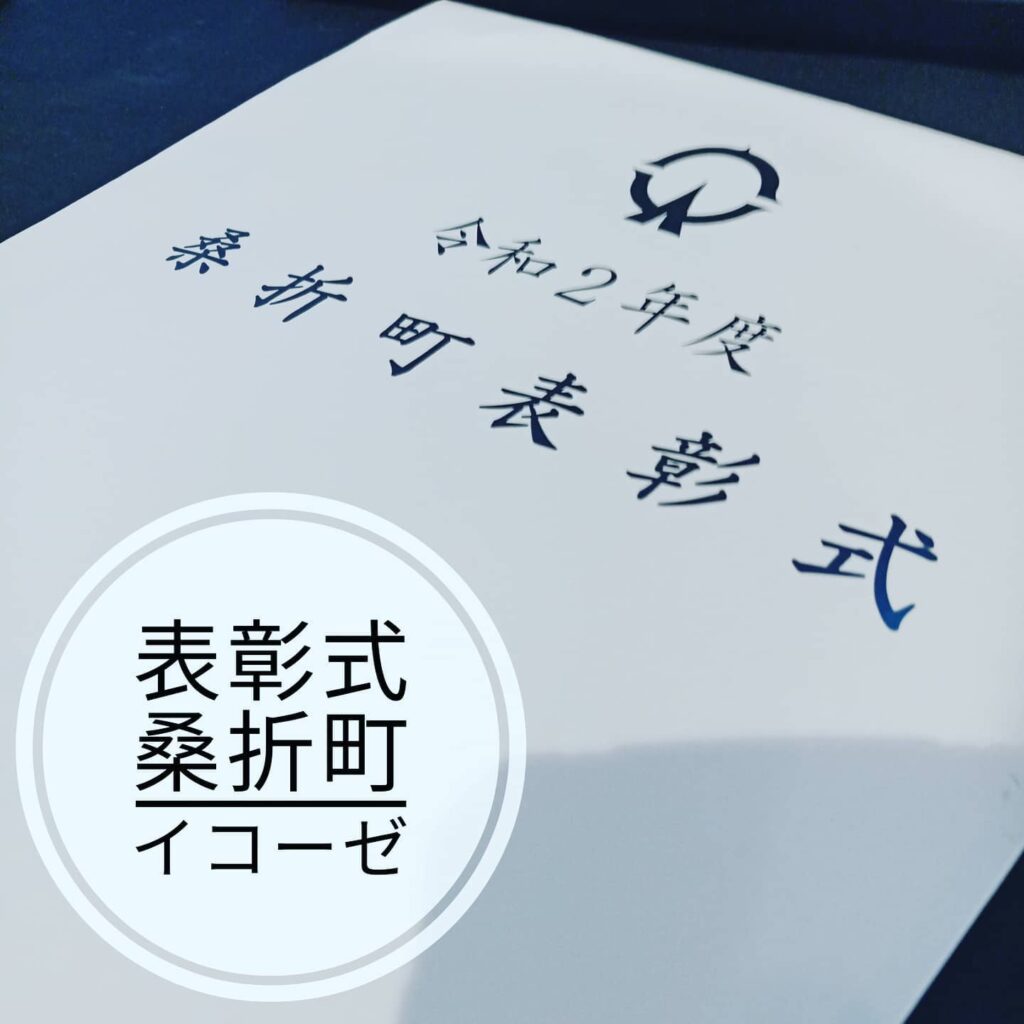 令和2年度
桑折町表彰式
表彰式
桑折町
イコーゼ